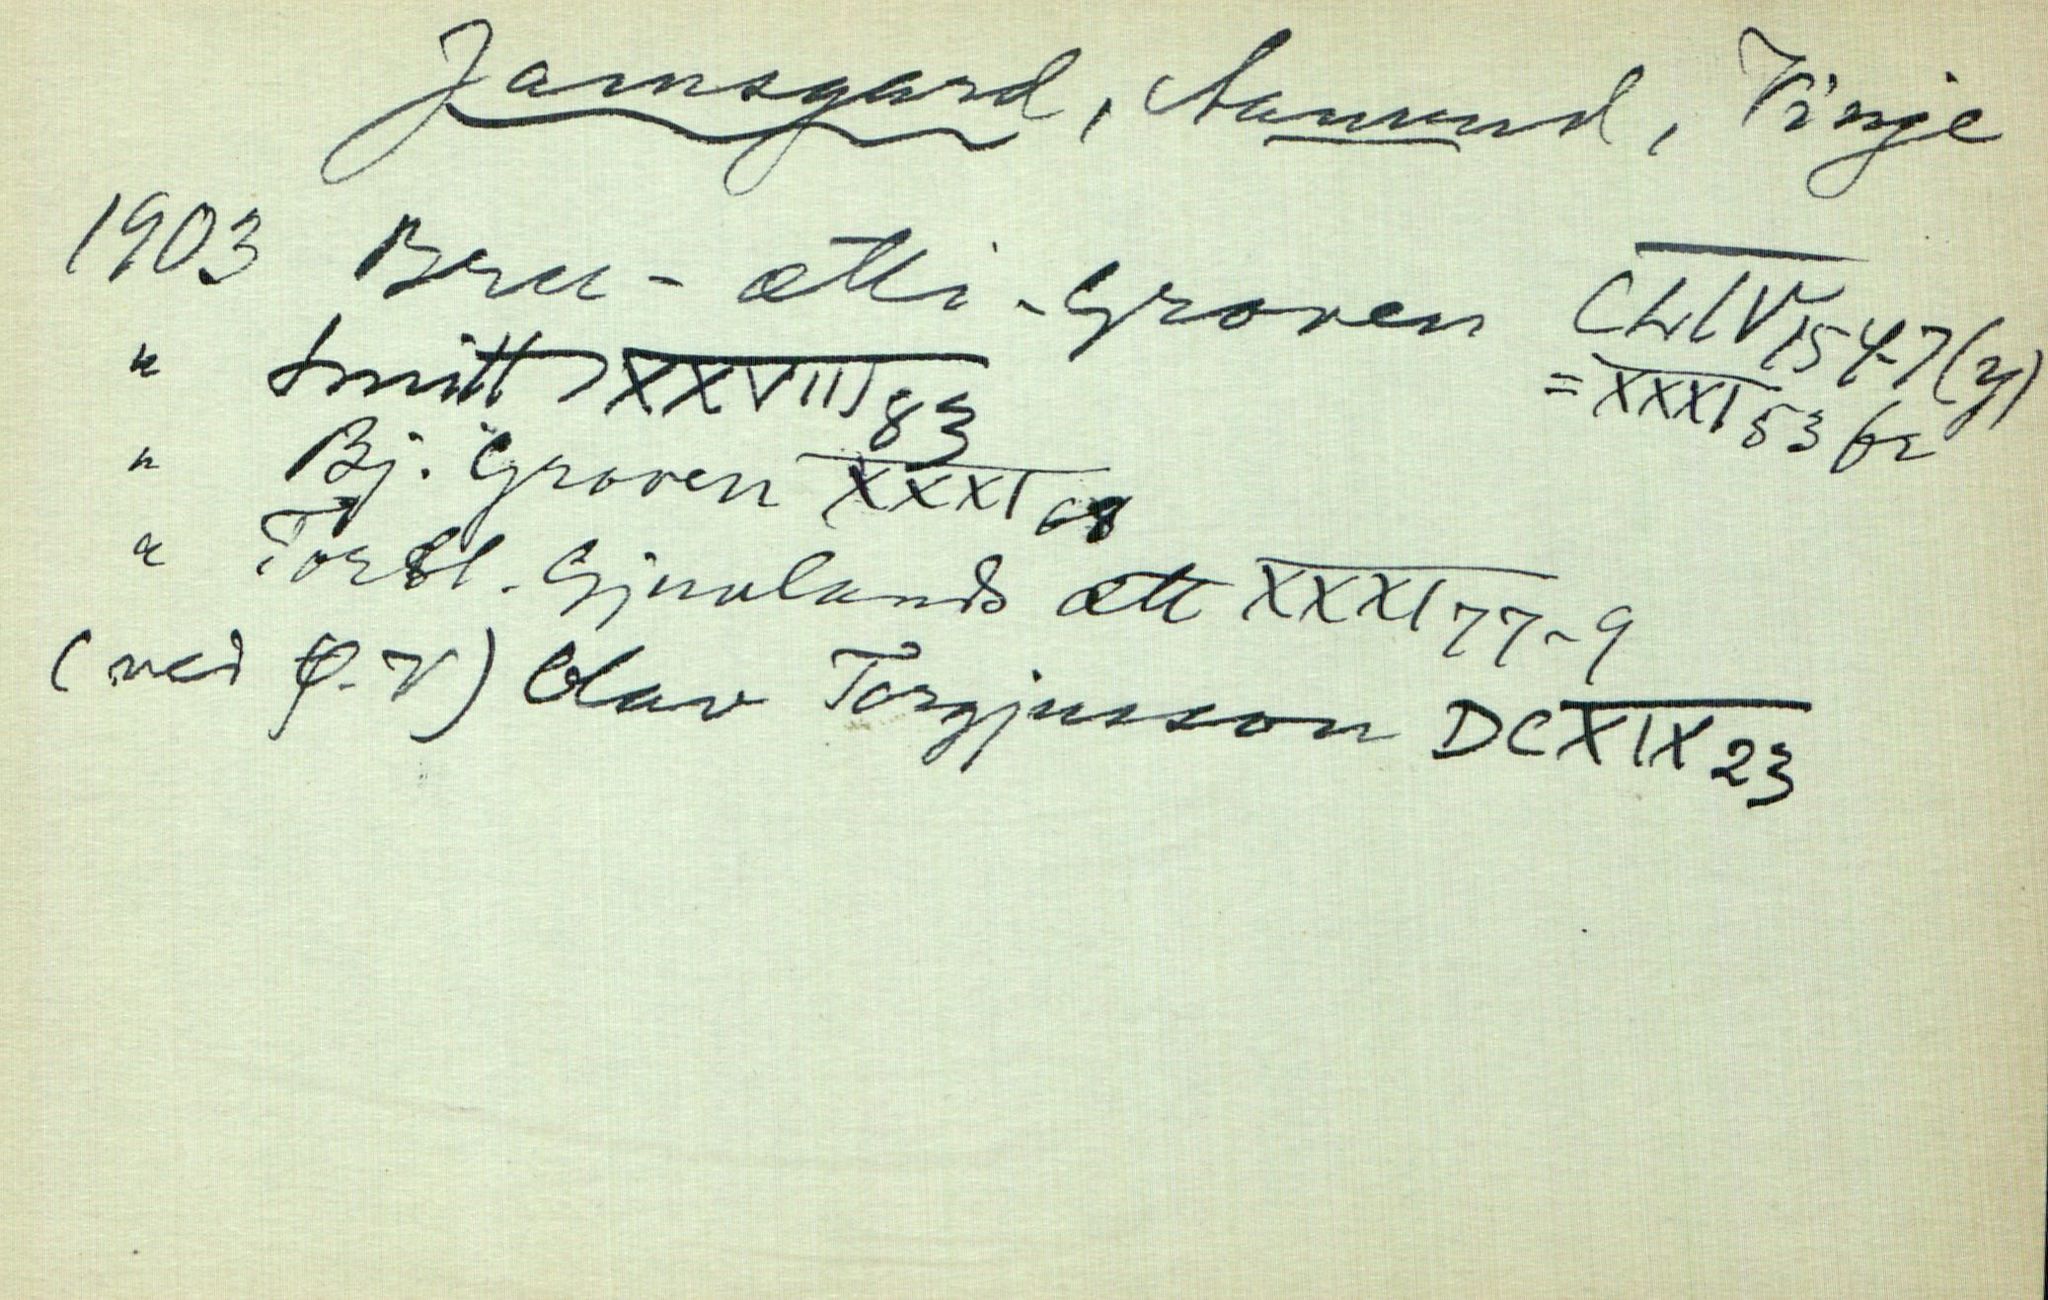 Jamsgard, Aamund, Vinje
1903 Bru-ætti-Groven CLIV 154-7 (y)
= XXXI 53 br
" Smått XXVIII 83
" Bj. Groven XXXI 68
" Torst. Gjuvlands ætt XXXI 77-9
(ved Ø.V) Olav Torgjusson DCXIX 23